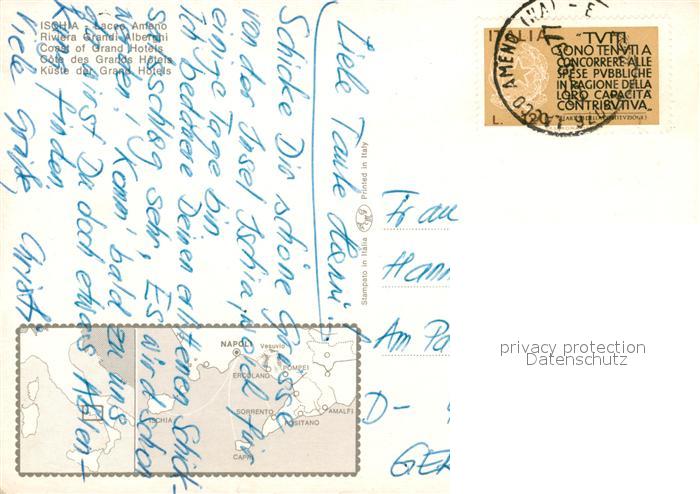 ISCHIA - Lacco Ameno
Riviera Grandi Alberghi
Coast of Grand Hotels
Côte des Grandes Hôtels
Küste der Grand Hotels
Liebe Tante Hanni!
Schicke Dir schöne Grüsse
von der Insel Ischia, wo ich für
einige Tage bin.
Ich bedauere Deinen Schick-
salsschlag sehr, Es wird schon
werden, komm' bald zu uns
da wirst Du doch etwas
finden.
Viele Grüße Christl
Stampato in Italia Printed in Italy
ITALIA
"TVTTI
SONO TENVTI A
CONCORRERE ALLE
SPESE PVBBLICHE
IN RAGIONE DELLA
LORO CAPACITÀ
CONTRIBVTIVA"
L.
LACCO AMENO (NA)
Frau
Hann
Am Pa
D-
GER
privacy protection
Datenschutz
NAPOLI
Vesuvio
ERCOLANO
POMPEI
ISCHIA
SORRENTO
POSITANO
AMALFI
CAPRI